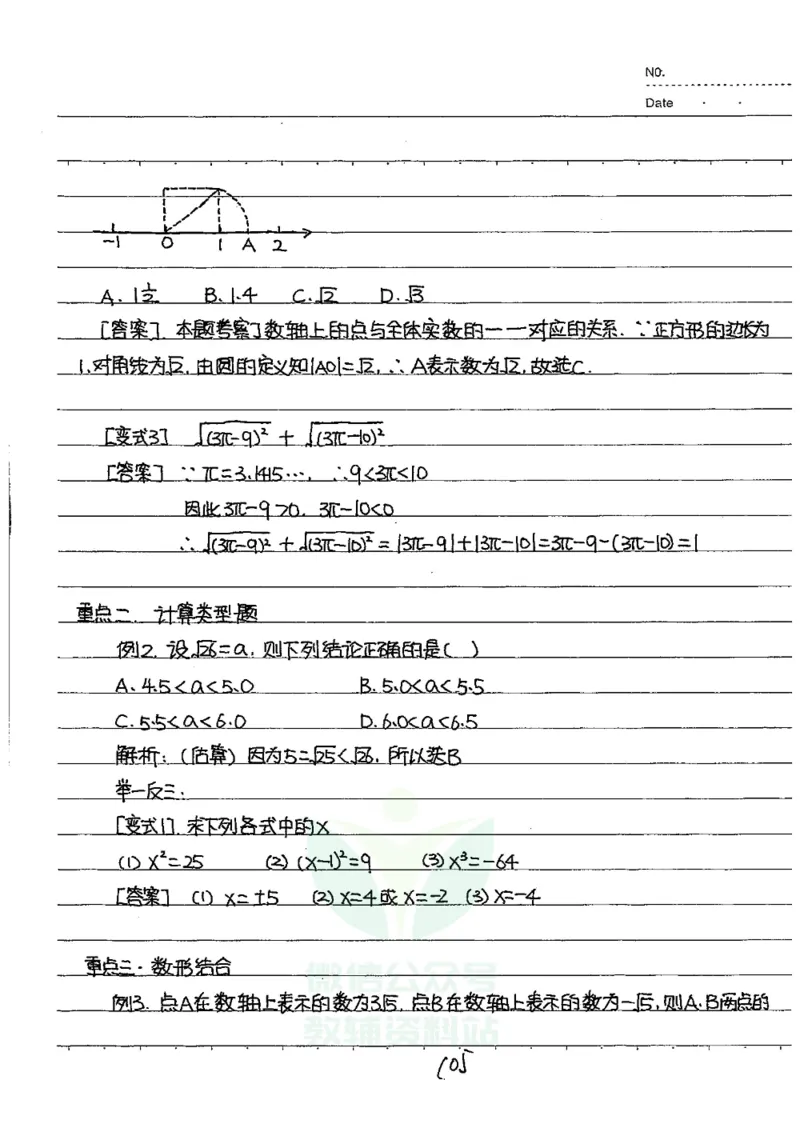 NO.
Date
-1 0 1 A 2
A. 1½ B. 1.4 C. √2 D. √3
[答案]. 本题考察了数轴上的点与全体实数的一一对应的关系. ∵正方形的边长为
1.对角线为√2, 由圆的定义知|AO|=√2, ∴ A表示数为√2,故选C.
[变式3] √(3π-9)² + √(3π-10)²
[答案] ∵ π=3.1415…, ∴9<3π<10
因此3π-9>0, 3π-10<0
∴ √(3π-9)² + √(3π-10)² = |3π-9|+|3π-10|=3π-9-(3π-10)=1
重点二. 计算类型题
例2. 设√26=a, 则下列结论正确的是( )
A. 4.5<a<5.0 B. 5.0<a<5.5
C. 5.5<a<6.0 D. 6.0<a<6.5
解析: (估算) 因为5=√25<√26, 所以选B
举一反三:
[变式1]. 求下列各式中的x
(1) x²=25 (2) (x-1)²=9 (3) x³=-64
[答案] (1) x=±5 (2) x=4或x=-2 (3) x=-4
重点三. 数形结合
微信公众号
例3. 点A在数轴上表示的数为3√5, 点B在数轴上表示的数为-√5,则A.B两点的
教辅资料站
105